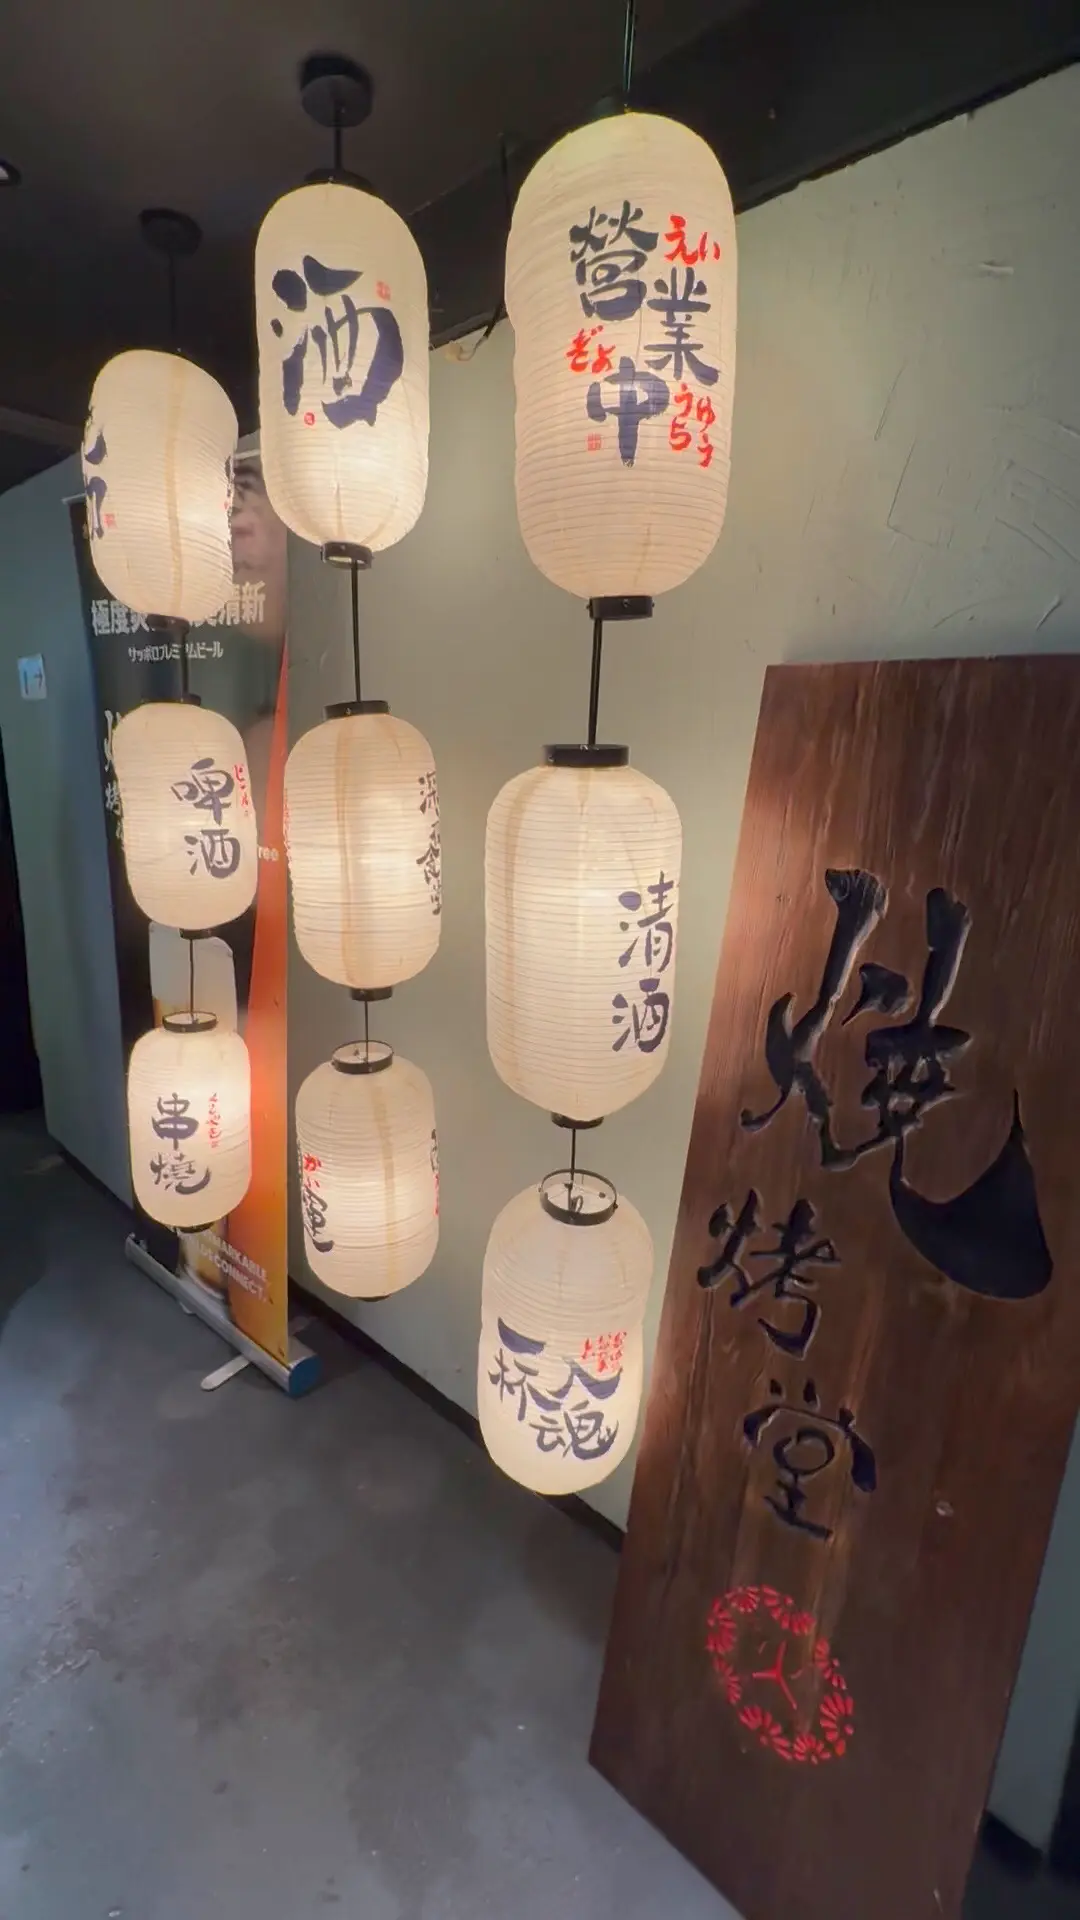 酒
營業中
えい
ぎょ
うち
ゆう
極度爽
清新
サッポロプレミアムビール
啤酒
ビール
深夜食堂
清酒
串燒
かい
一杯入魂
燒
烤
堂